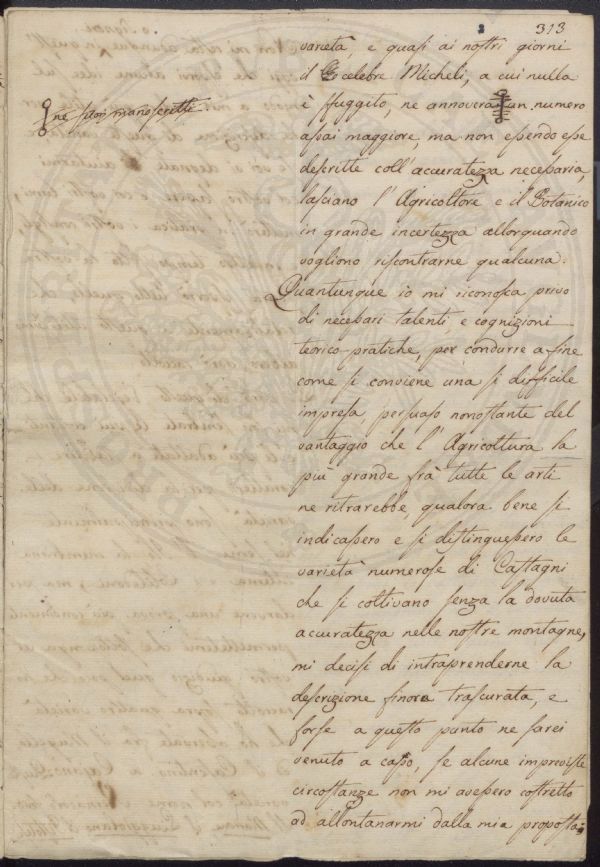 313
varietà, e quasi ai nostri giorni
il celebre Micheli, a cui nulla
è sfuggito, ne annovera un numero
ne suoi manoscritti
assai maggiore, ma non essendo esse
descritte coll' accuratezza necessaria,
lasciano l' Agricoltore e il Botanico
in grande incertezza allorquando
vogliono riscontrarne qualcuna.
Quantunque io mi riconosca privo
di necessari talenti, e cognizioni
teorico-pratiche, per condurre a fine
come si conviene una si difficile
impresa, persuaso nonostante del
vantaggio che l' Agricoltura la
più grande frà tutte le arti
ne ritrarebbe, qualora bene si
indicassero e si distinguessero le
varietà numerose di Castagni
che si coltivano senza la dovuta
accuratezza nelle nostre montagne,
mi decisi di intraprenderne la
descrizione finora trascurata, e
forse a questo punto ne sarei
venuto a capo, se alcune impreviste
circostanze non mi avessero costretto
ad allontanarmi dalla mia proposta